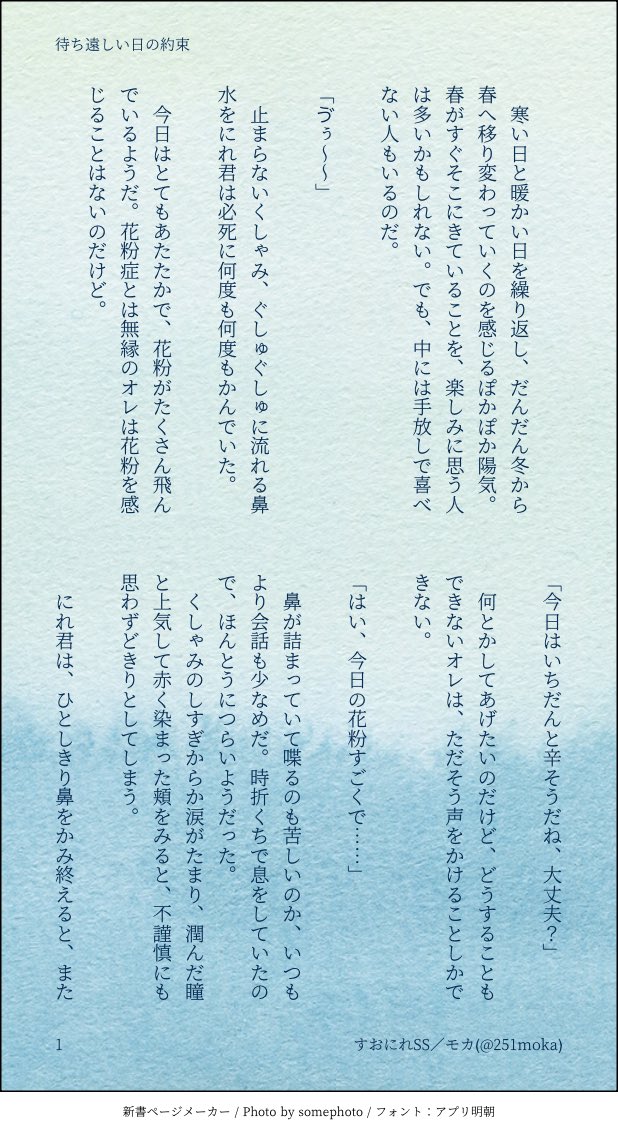 待ち遠しい日の約束
　寒い日と暖かい日を繰り返し、だんだん冬から
春へ移り変わっていくのを感じるぽかぽか陽気。
春がすぐそこにきていることを、楽しみに思う人
は多いかもしれない。でも、中には手放しで喜べ
ない人もいるのだ。
「ゔぅ〜〜」
　止まらないくしゃみ、ぐしゅぐしゅに流れる鼻
水をにれ君は必死に何度も何度もかんでいた。
　今日はとてもあたたかで、花粉がたくさん飛ん
でいるようだ。花粉症とは無縁のオレは花粉を感
じることはないのだけど。
「今日はいちだんと辛そうだね、大丈夫？」
　何とかしてあげたいのだけど、どうすることも
できないオレは、ただそう声をかけることしかで
きない。
「はい、今日の花粉すごくで……」
　鼻が詰まっていて喋るのも苦しいのか、いつも
より会話も少なめだ。時折くちで息をしていたの
で、ほんとうにつらいようだった。
　くしゃみのしすぎからか涙がたまり、潤んだ瞳
と上気して赤く染まった頬をみると、不謹慎にも
思わずどきりとしてしまう。
　にれ君は、ひとしきり鼻をかみ終えると、また
1
すおにれSS／モカ(@251moka)
新書ページメーカー / Photo by somephoto / フォント：アプリ明朝